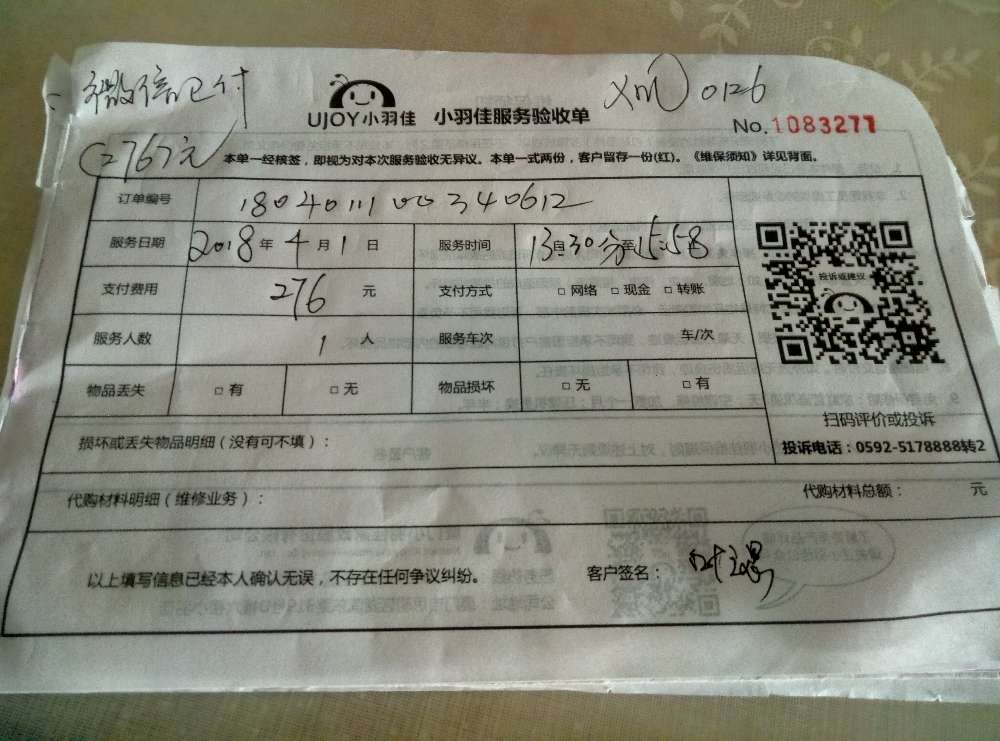 微信已付
276元
UJOY小羽佳 小羽佳服务验收单
Xm 0126
No.1083277
本单一经核签，即视为对本次服务验收无异议。本单一式两份，客户留存一份(红)。《维保须知》详见背面。
订单编号 1804011100340612
服务日期 2018年4月1日 服务时间 13自30分至15:58
支付费用 276 元 支付方式 □网络 □现金 □转账
服务人数 1 人 服务车次 车/次
物品丢失 □有 □无 物品损坏 □无 □有
投诉或建议
扫码评价或投诉
投诉电话：0592-5178888转2
损坏或丢失物品明细（没有可不填）：
代购材料明细（维修业务）： 代购材料总额： 元
以上填写信息已经本人确认无误，不存在任何争议纠纷。 客户签名：